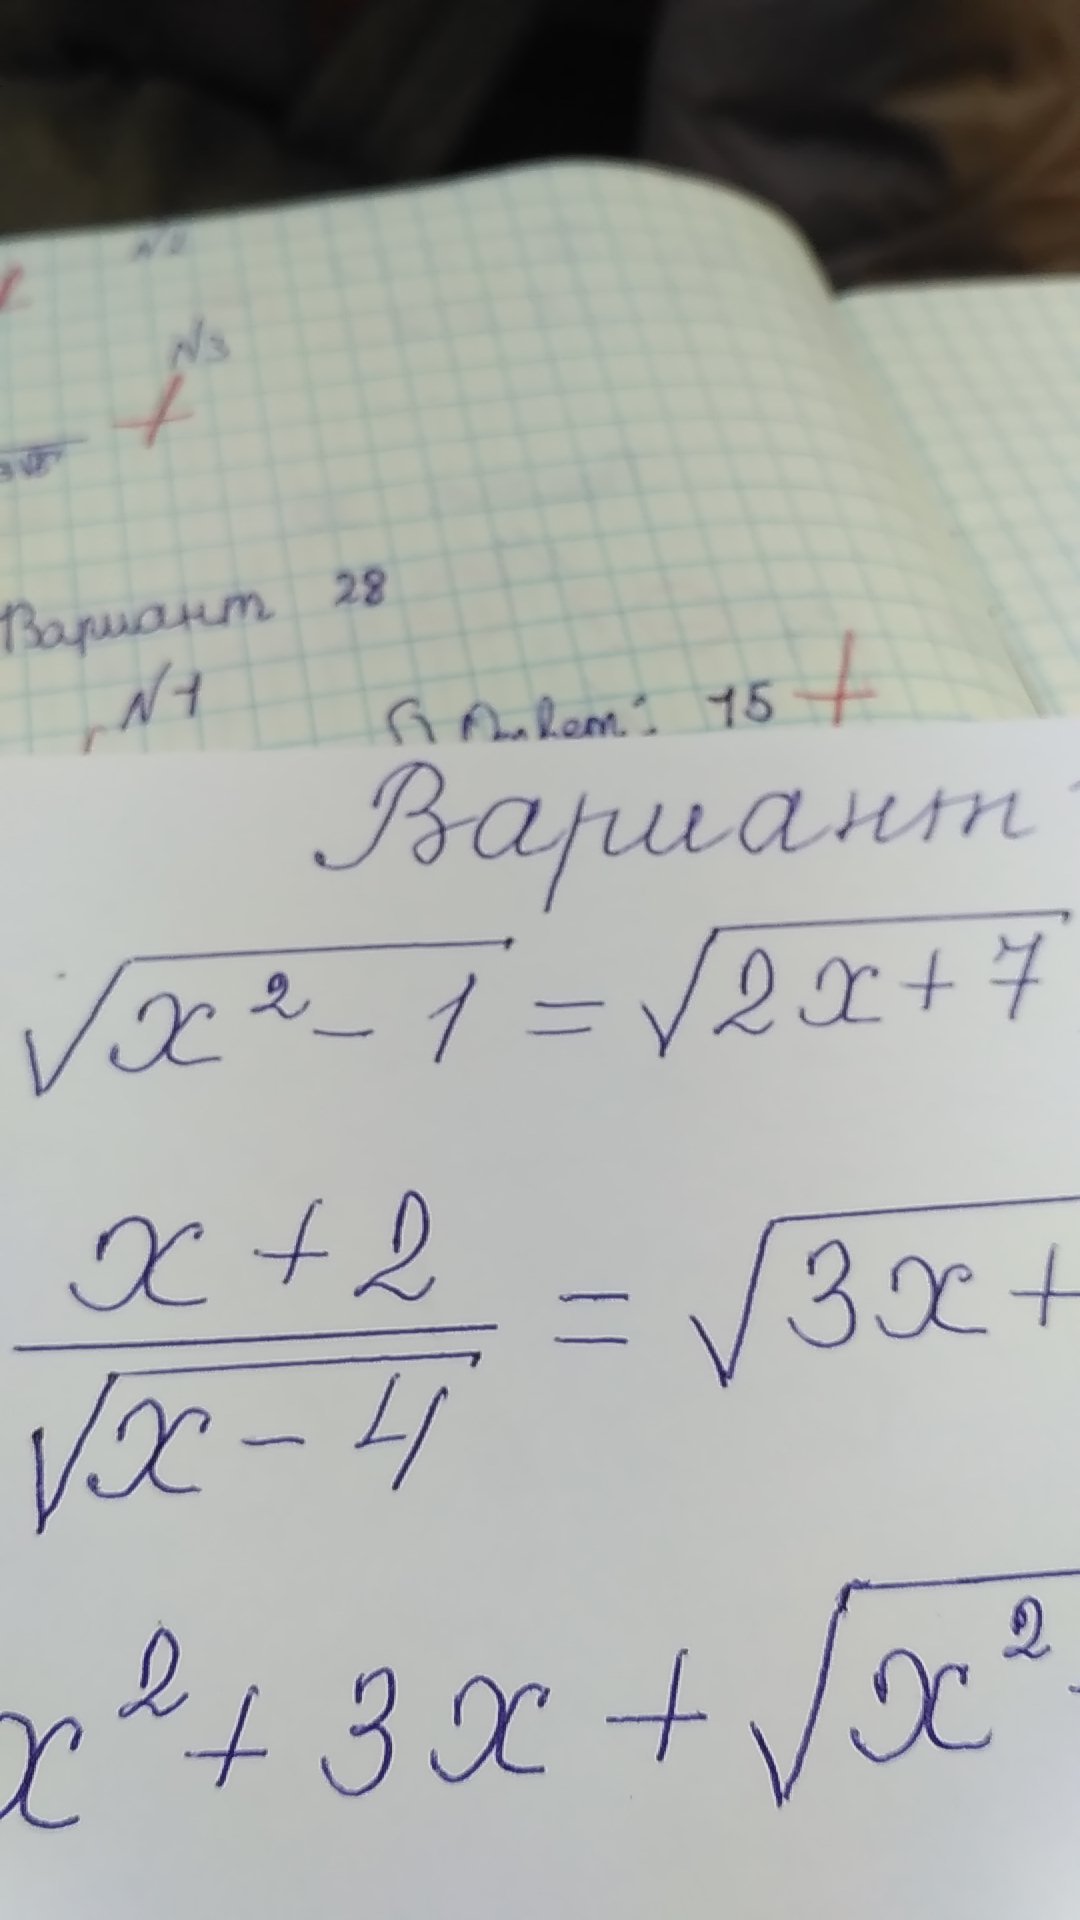 N2
N3
3√8
Вариант 28
N1
Ответ: 15 +
Вариант
√x² - 1 = √2x + 7
x + 2 / √x - 4 = √3x +
x² + 3x + √x²